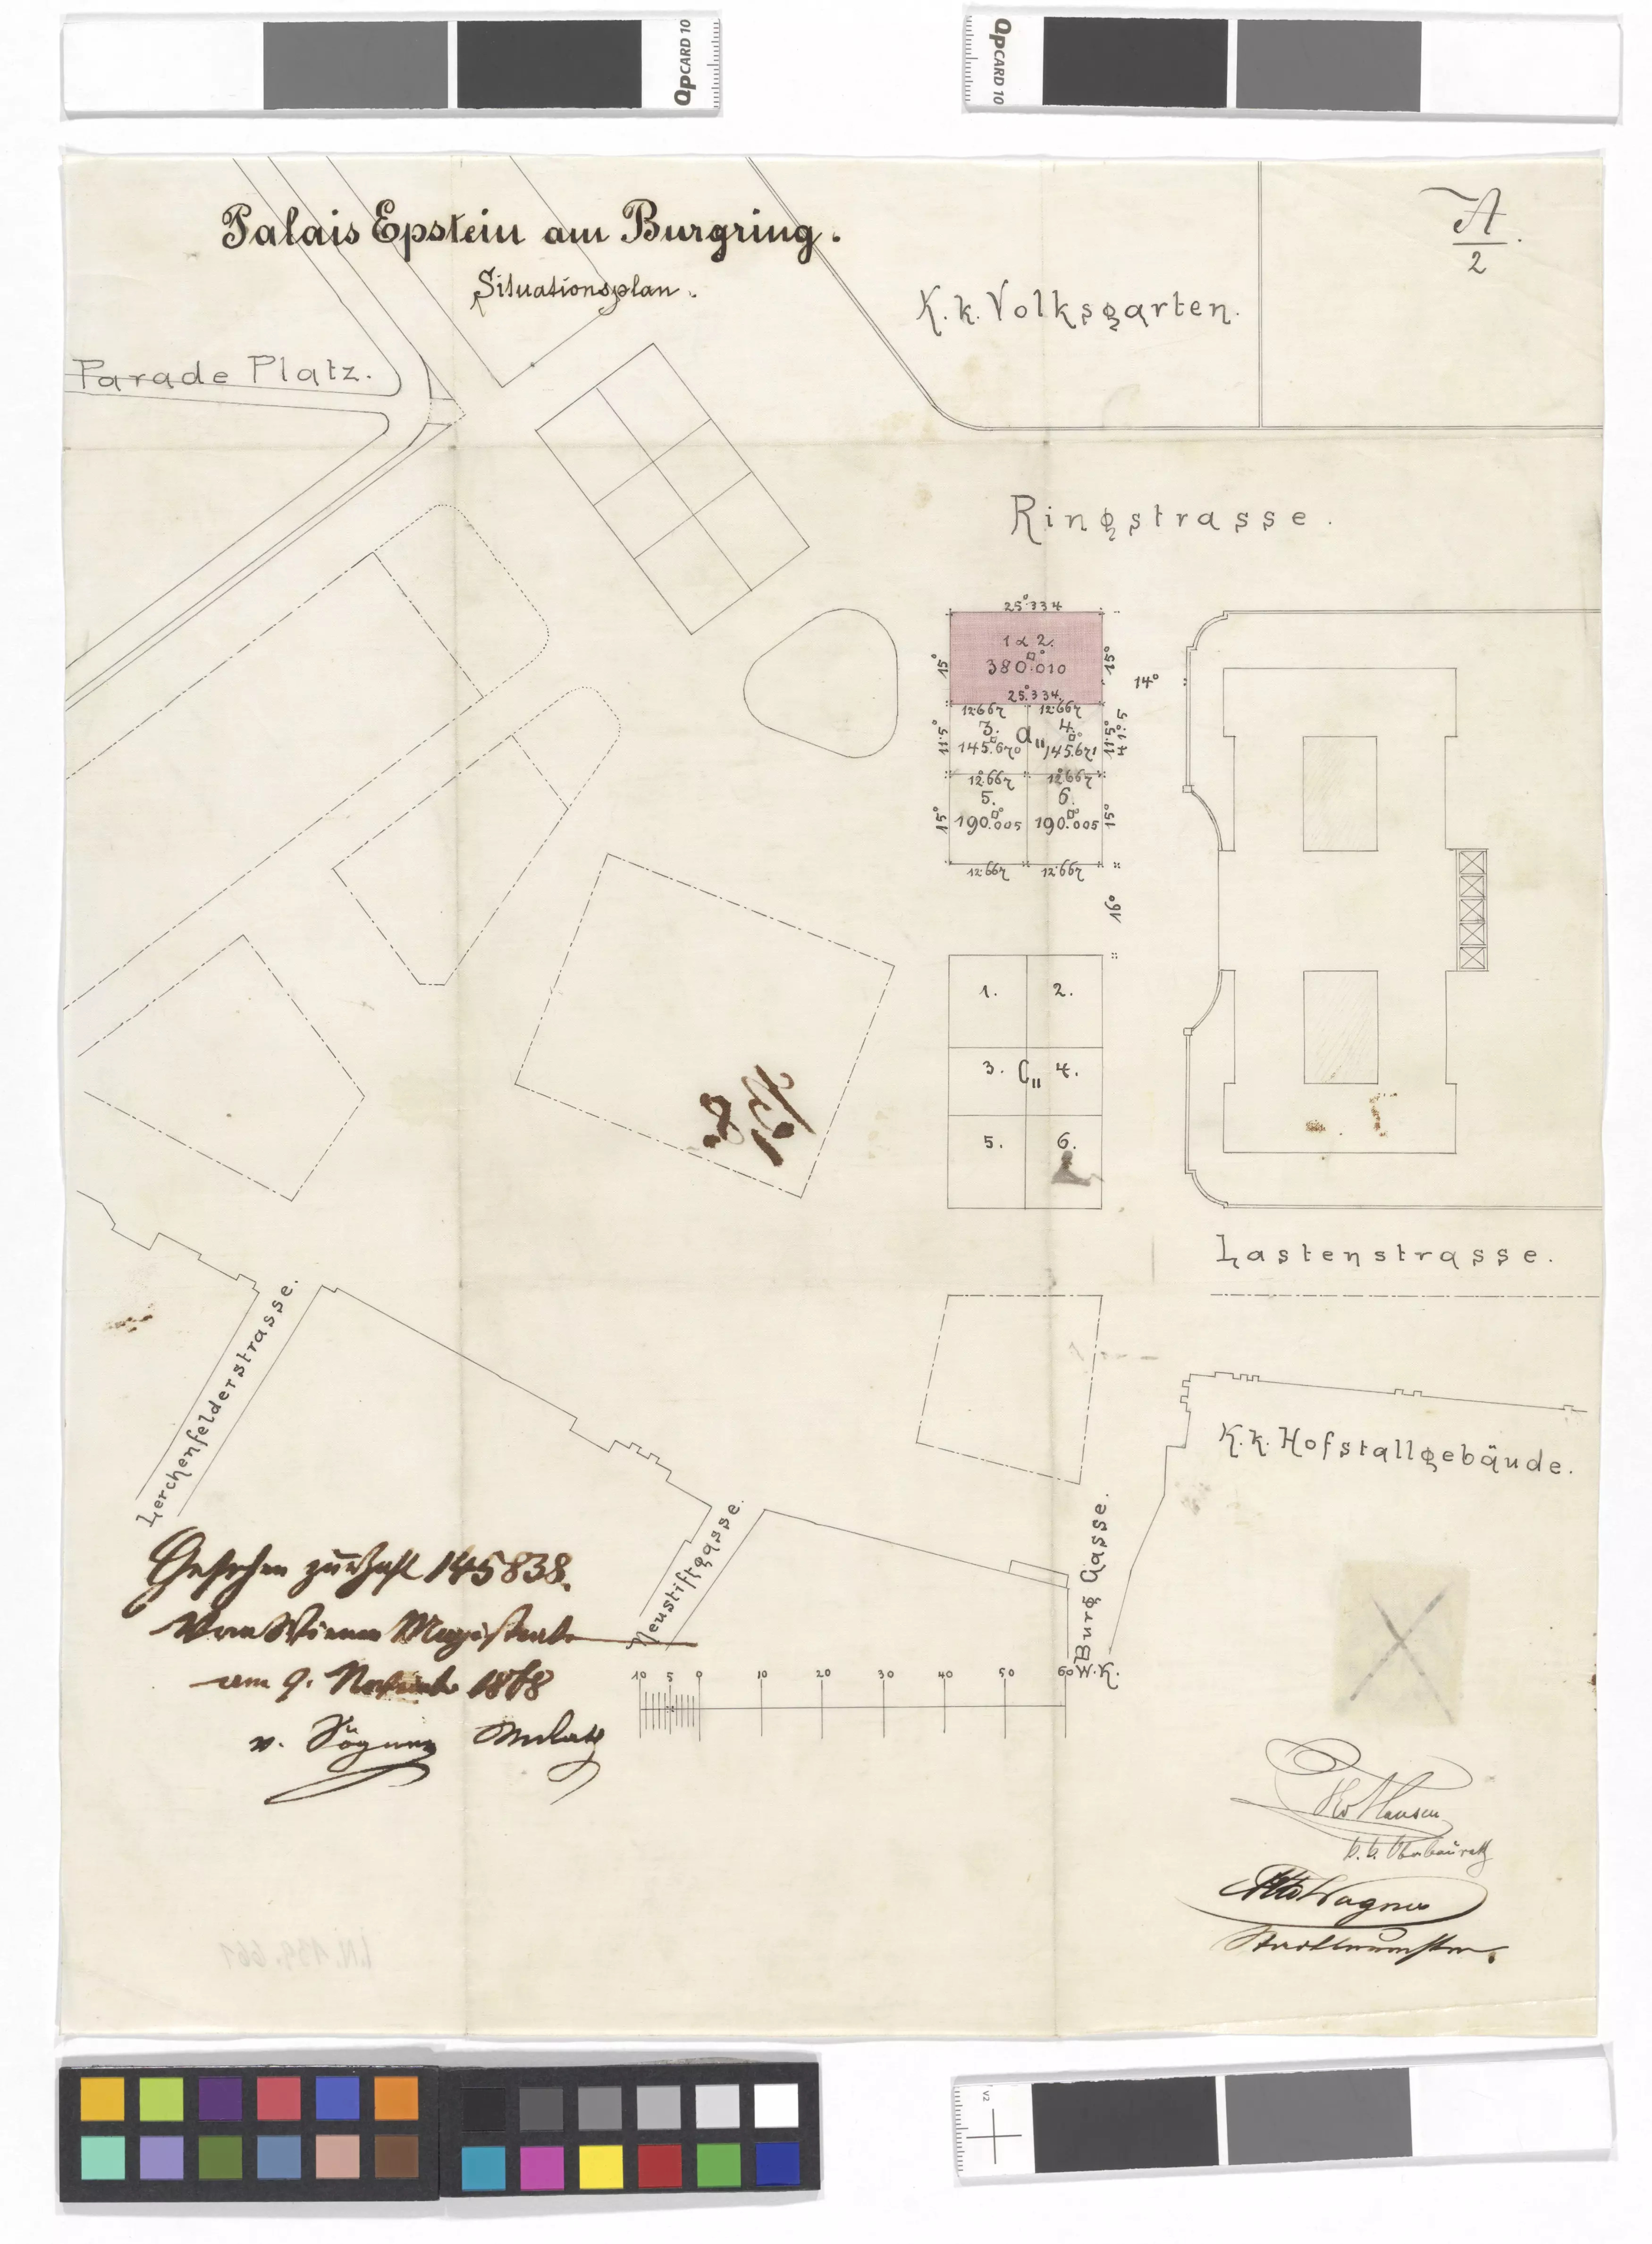 QpCARD 10
QpCARD 10
Palais Epstein am Burgring.
Situationsplan.
A
2
K. k. Volksgarten.
Parade Platz.
Ringstrasse.
25°334
1 & 2.
15°
380.010
15°
25°334
14°
12°667 12°667
3. a,, 4.
11°5
145.670 145.671
11°5
41°5
12°667 12°667
5. 6.
15°
190.005 190.005
15°
12°667 12°667
16°
1. 2.
3. C,, 4.
5. 6.
Lastenstrasse.
Lerchenfelderstrasse.
K. k. Hofstallgebäude.
Neustiftgasse.
Burg Gasse.
Gesehen zur Zahl 145838.
Vom Wiener Magistrate
am 9. November 1868
10 5 0 10 20 30 40 50 60 W. K.
Hansen
k. k. Oberbaurath
Otto Wagner
Stadtbaumeister.
I.N. 139.661